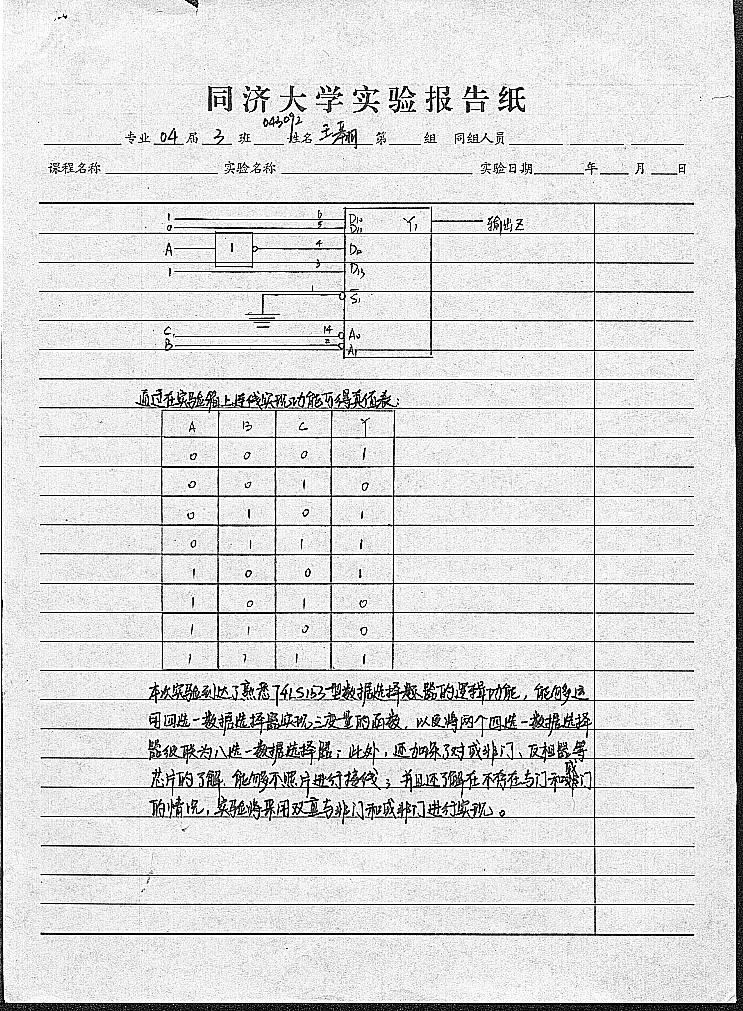 同济大学实验报告纸
专业 04 届 3 班 043092 姓名 王翱 第 组 同组人员
课程名称 实验名称 实验日期 年 月 日
1 6 D10 Y1 输出Z
0 5 D11
A 1 4 D12
1 3 D13
1 S1
C 14 A0
B 2 A1
通过在实验箱上连线实现功能可得真值表:
A B C Y
0 0 0 1
0 0 1 0
0 1 0 1
0 1 1 1
1 0 0 1
1 0 1 0
1 1 0 0
1 1 1 1
本次实验到达了熟悉74LS153型数据选择器的逻辑功能,能够运
用四选一数据选择器实现三变量的函数,以及将两个四选一数据选择
器级联为八选一数据选择器;此外,还加深了对或非门、反相器等
芯片的了解,能够不照片进行接线;并且还了解在不存在与门和或门
的情况,实验将采用双重与非门和或非门进行实现。